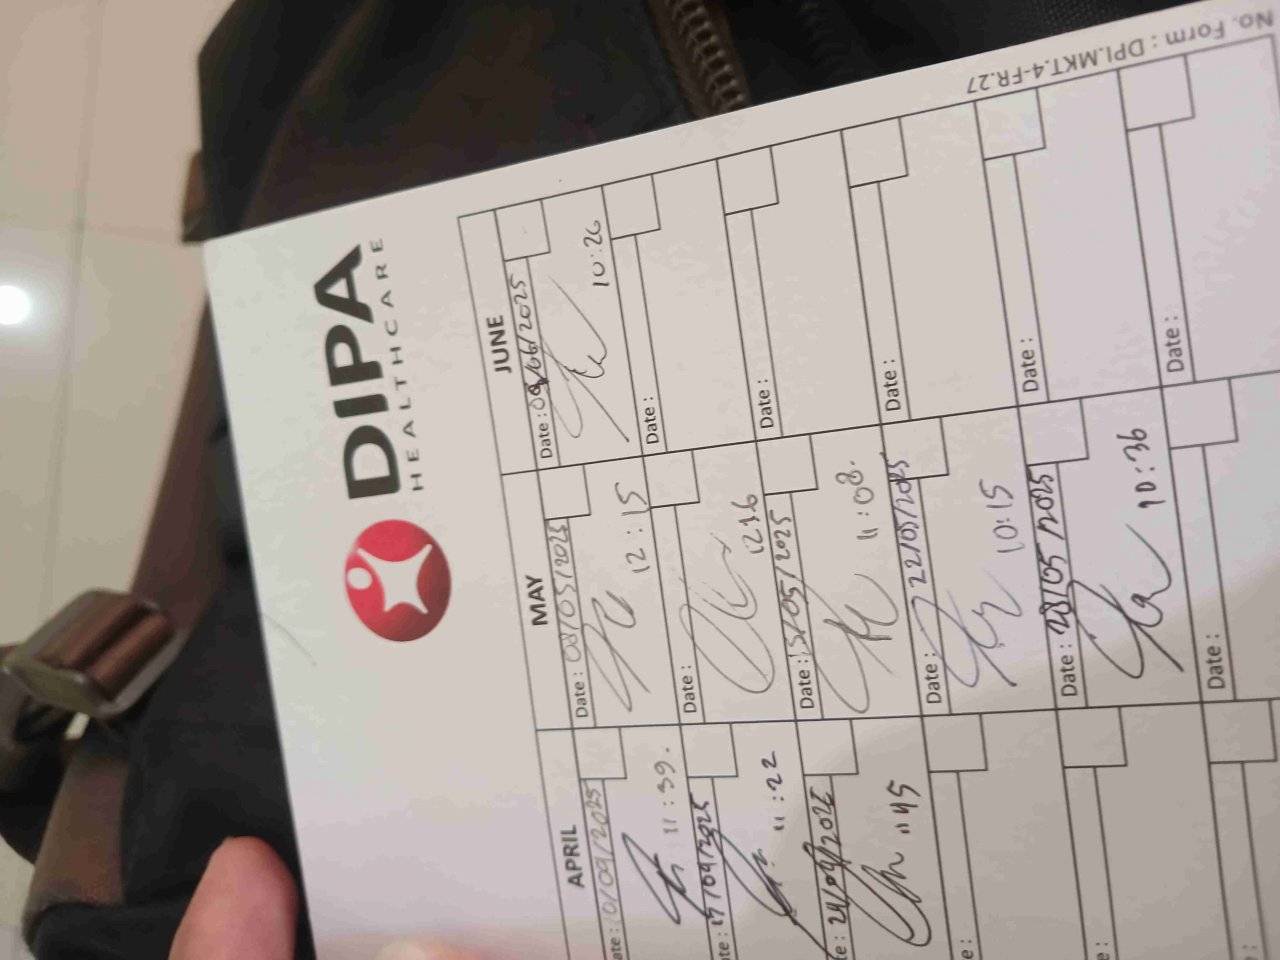 DIPA
HEALTHCARE
APRIL
ate: 10/04/2025
11:39.
te: 17/04/2025
11:22
te: 24/04/2025
11:45
e:
e:
:
MAY
Date: 08/05/2025
12:15
Date:
12:16
Date: 15/05/2025
11:08.
Date: 22/05/2025
10:15
Date: 28/05/2025
10:36
Date:
JUNE
Date: 0/06/2025
10:26
Date:
Date:
Date:
Date:
Date:
No. Form : DPI.MKT.4-FR.27